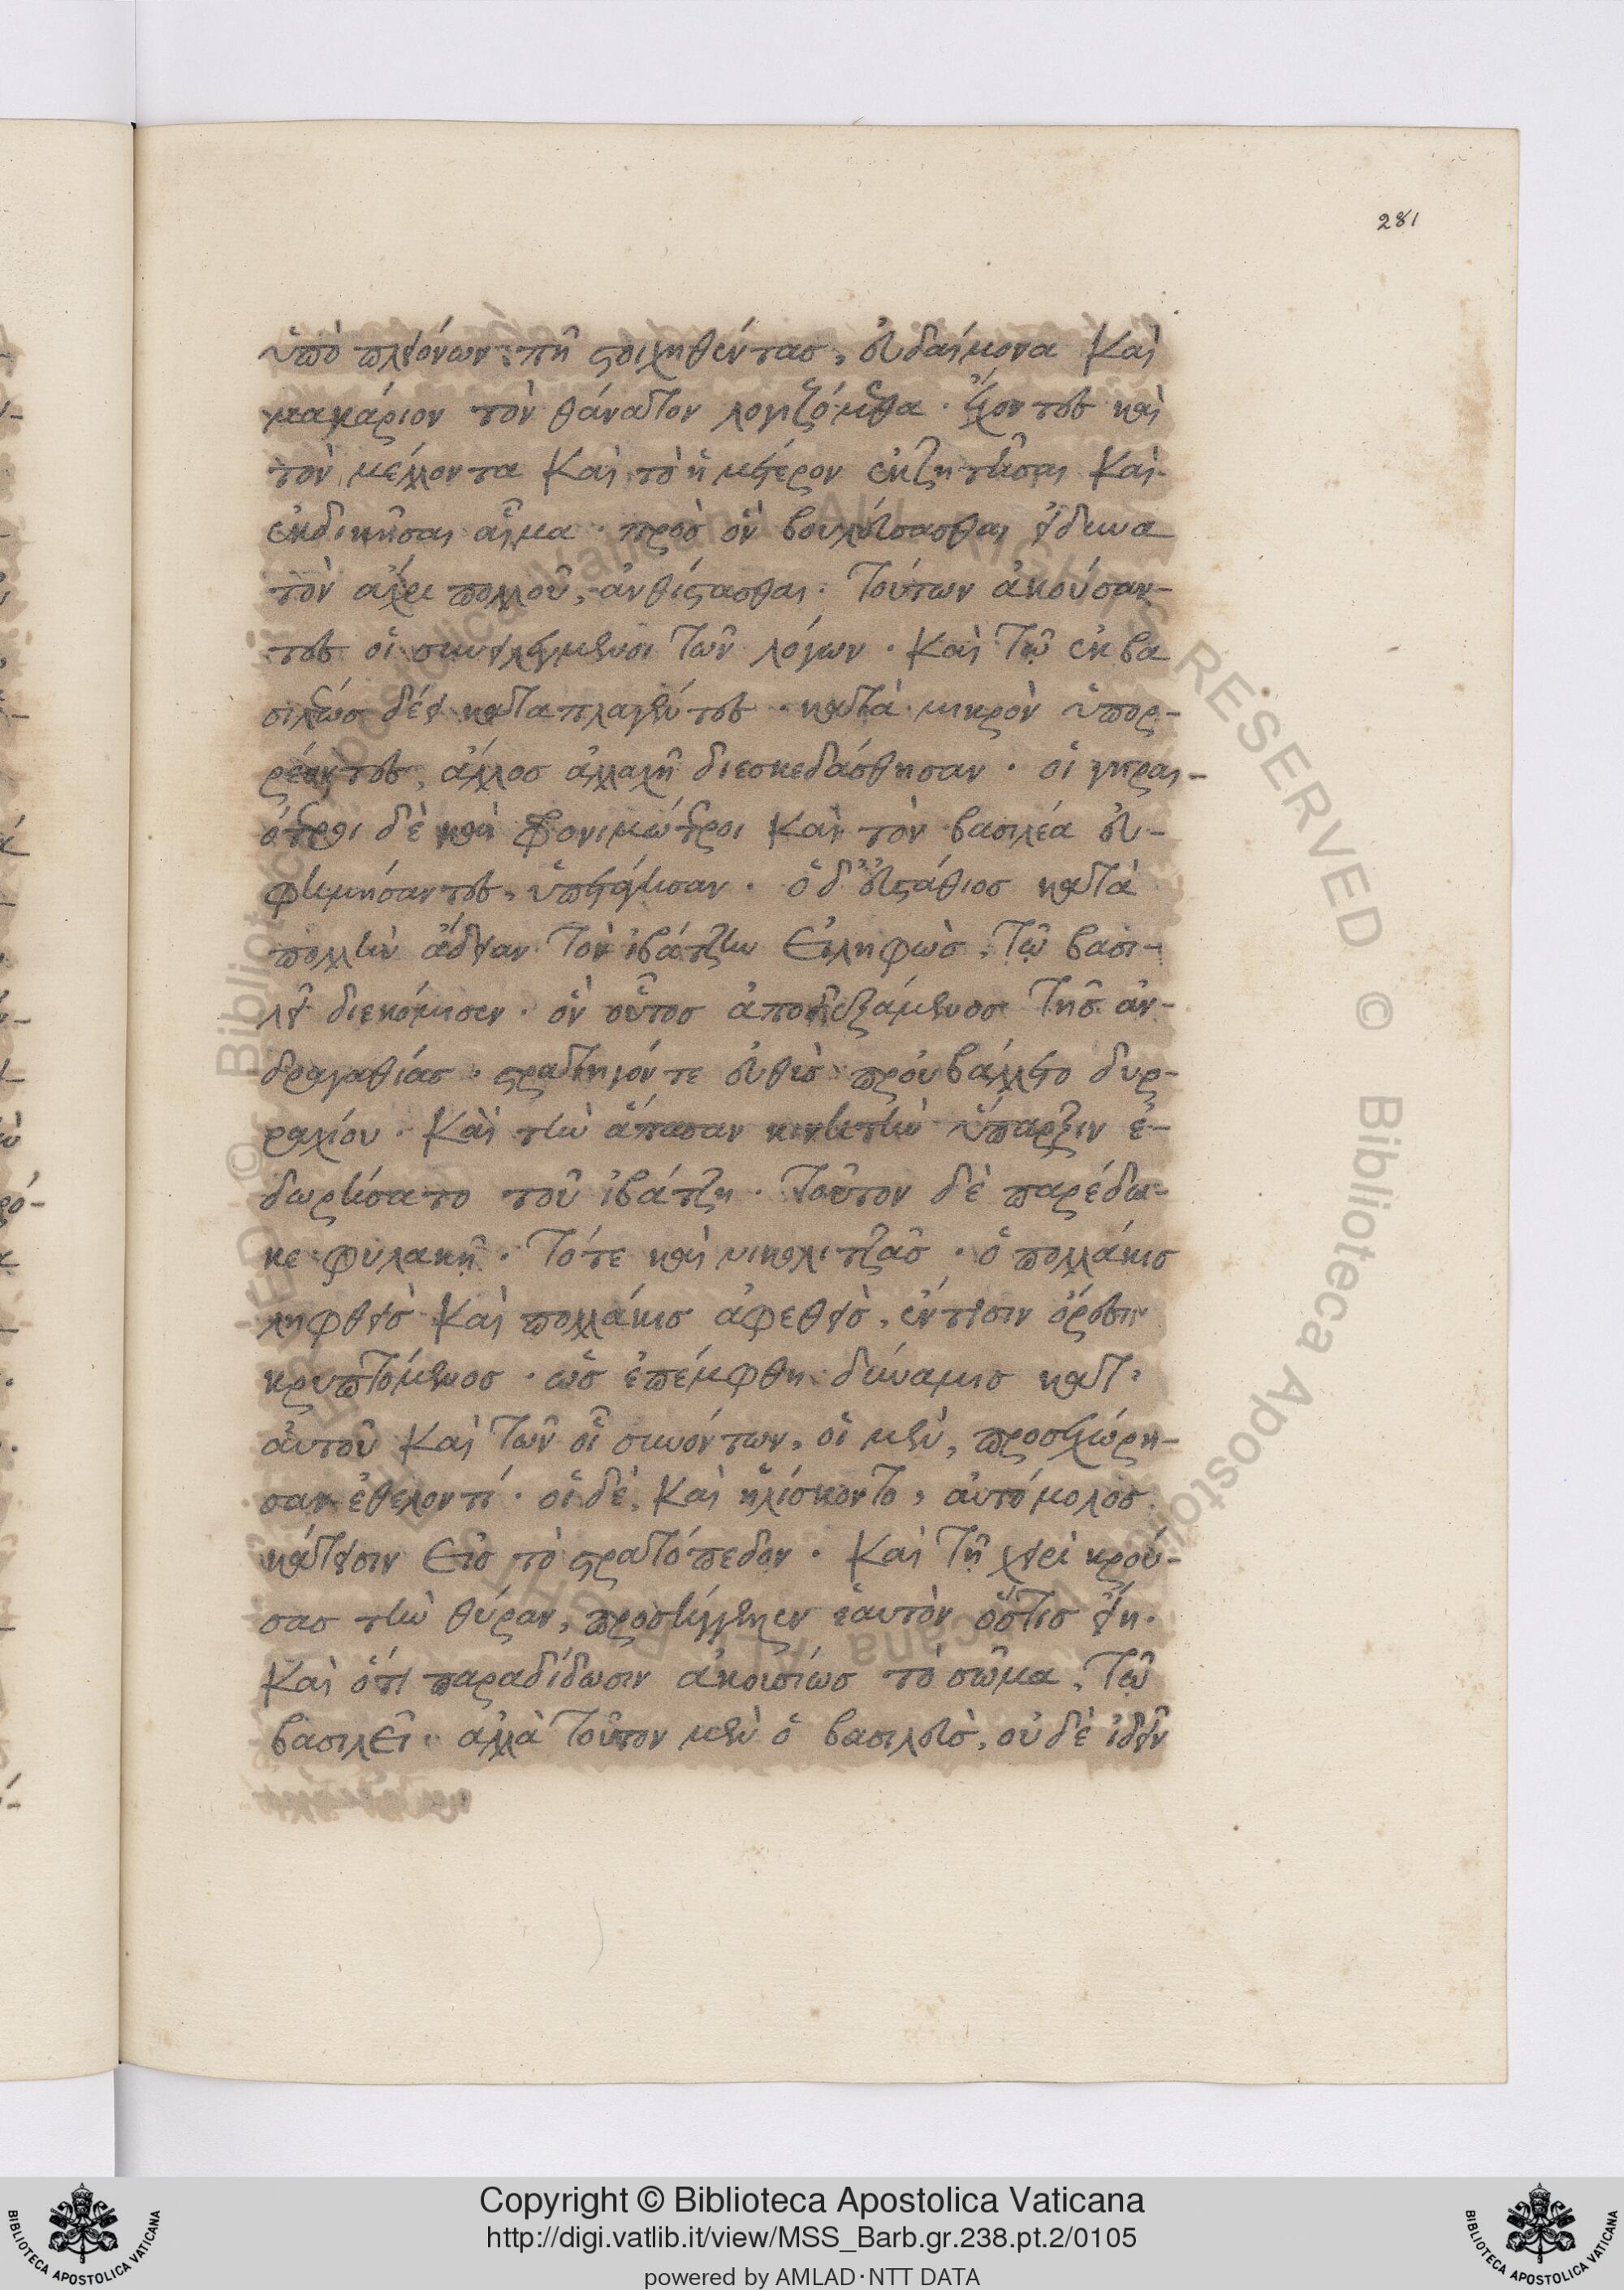 281
ὑπὸ πλειόνων πῆ στοιχηθέντας, εὐδαίμονα καὶ
μακάριον τὸν θάνατον λογιζόμεθα · ἔχοντες καὶ
τὸν μέλλοντα καὶ τὸ ἡμέτερον ἐκζητῆσαι καὶ
ἐκδικῆσαι αἷμα · πρὸς ὃν βουλεύσασθαι εἰ δεινὰ
τὸν ἄχρι πολλοῦ, ἀνθίστασθαι · Τούτων ἀκούσαν-
τες οἱ συνειλεγμένοι τῶν λόγων · καὶ τῷ ἐκ βα
σιλέως δέει καταπλαγέντες · κατὰ μικρὸν ὑπορ-
ρέοντες, ἄλλος ἀλλαχῆ διεσκεδάσθησαν · οἱ γηραι-
ότεροι δὲ καὶ φρονιμώτεροι καὶ τὸν βασιλέα εὐ-
φημήσαντες, ὑπετάγησαν · ὁ δ' εὐστάθιος κατὰ
πολλὴν ἄδειαν τὸν ἰβάτζην εἰληφὼς, τῷ βασι-
λεῖ διεκόμισεν · ὃν οὗτος ἀποδεξάμενος τῆς ἀν-
δραγαθίας · στρατηγόν τε εὐθὺς προὐβάλλετο δυρ-
ραχίου · καὶ τὴν ἅπασαν κινητὴν ὕπαρξιν ἐ-
δωρήσατο τοῦ ἰβάτζη · τοῦτον δὲ παρέδω-
κε φυλακῇ · Τότε καὶ νικολιτζᾶς · ὁ πολλάκις
ληφθεὶς καὶ πολλάκις ἀφεθεὶς, ἔν τισιν ὄρεσιν
κρυπτόμενος · ὡς ἐπέμφθη δύναμις κατ'
αὐτοῦ καὶ τῶν οἷ συνόντων, οἱ μὲν, προσεχώρη-
σαν ἐθελοντί · οἱ δὲ, καὶ ἡλίσκοντο, αὐτόμολος
κάτεισιν εἰς τὸ στρατόπεδον · καὶ τῇ χειρὶ κρού-
σας τὴν θύραν, προσήγγειλεν ἑαυτὸν ὅστις εἴη ·
καὶ ὅτι παραδίδωσιν ἀκουσίως τὸ σῶμα, τῷ
βασιλεῖ · ἀλλὰ τοῦτον μὲν ὁ βασιλεὺς, οὐδὲ ἰδεῖν
Copyright © Biblioteca Apostolica Vaticana
http://digi.vatlib.it/view/MSS_Barb.gr.238.pt.2/0105
powered by AMLAD·NTT DATA